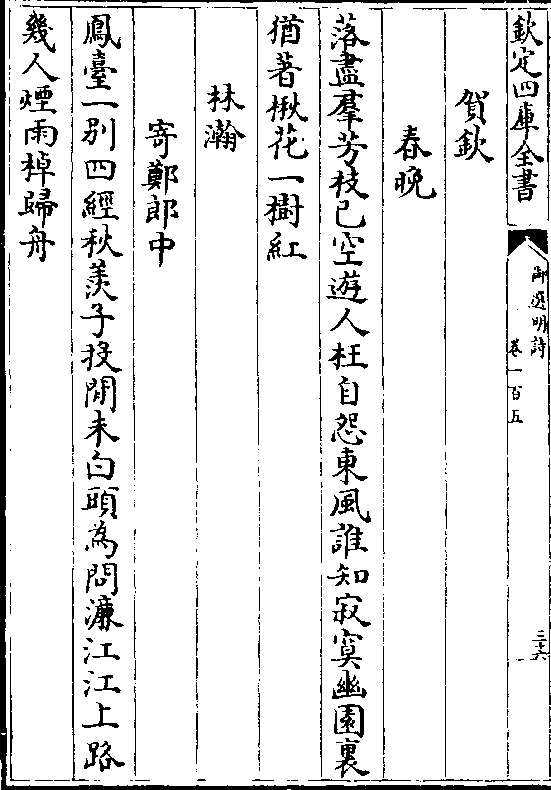 欽定四庫全書
御選明詩
卷一百五
三十六
賀欽
春晚
落盡羣芳枝已空遊人枉自怨東風誰知寂寞幽園裏
猶著楸花一樹紅
林瀚
寄鄭郎中
鳳臺一别四經秋羨子投閒未白頭為問濂江江上路
幾人煙雨棹歸舟